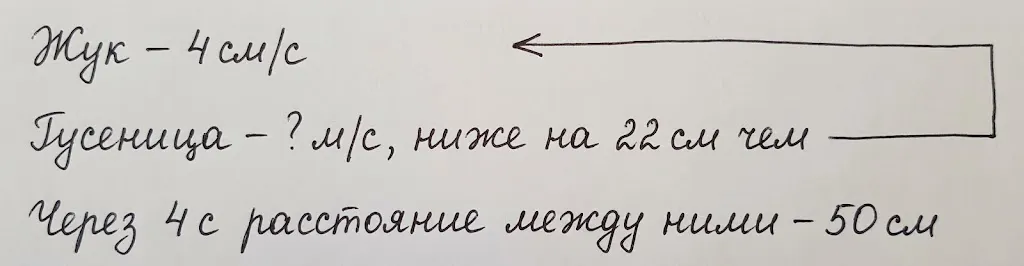 Жук – 4 см/с
Гусеница – ? м/с, ниже на 22 см чем
Через 4 с расстояние между ними – 50 см